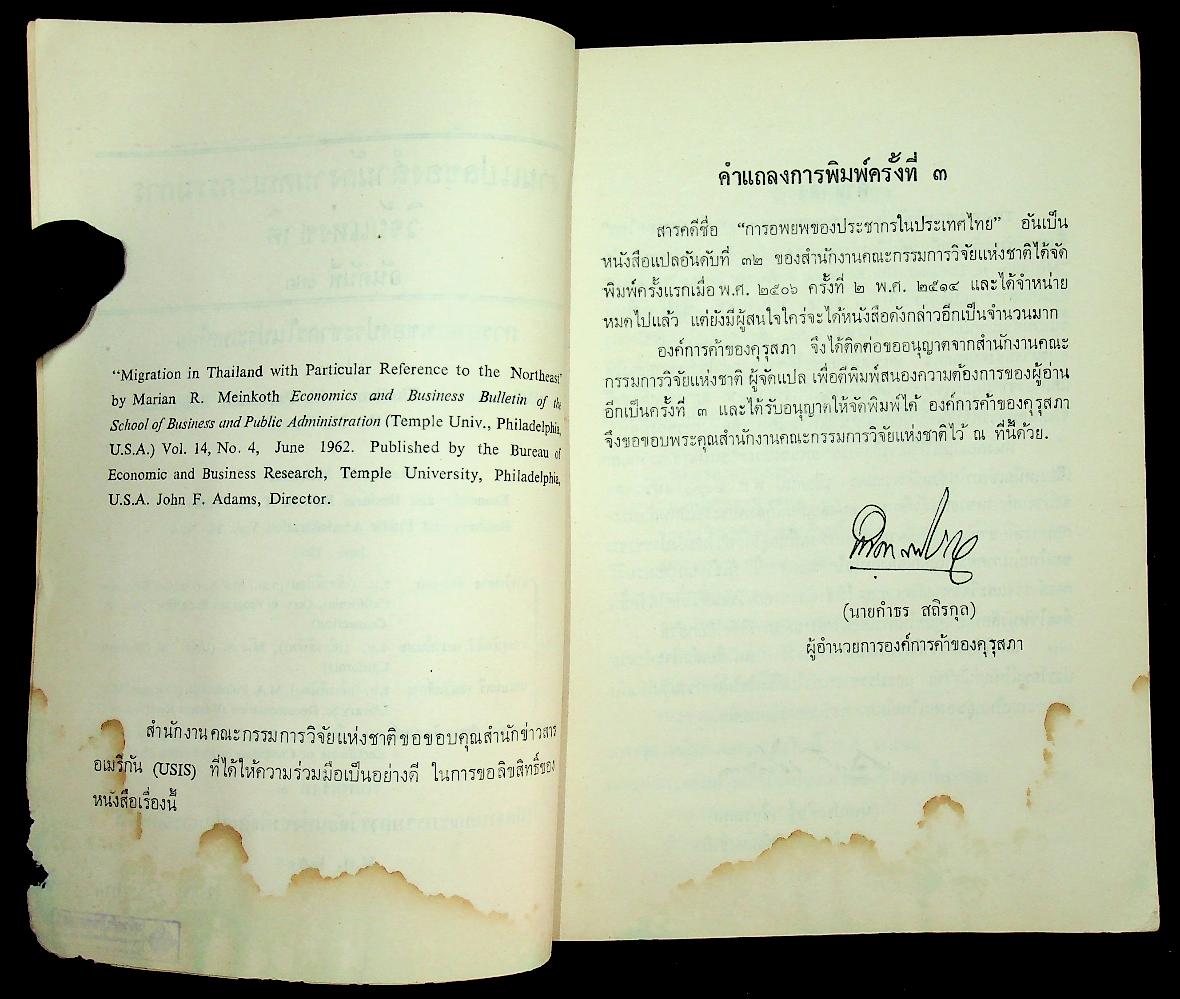 “Migration in Thailand with Particular Reference to the Northeast”
by Marian R. Meinkoth Economics and Business Bulletin of the
School of Business and Public Administration (Temple Univ., Philadelphia,
U.S.A.) Vol. 14, No. 4, June 1962. Published by the Bureau of
Economic and Business Research, Temple University, Philadelphia,
U.S.A. John F. Adams, Director.
สำนักงานคณะกรรมการวิจัยแห่งชาติขอขอบคุณสำนักข่าวสาร
อเมริกัน (USIS) ที่ได้ให้ความร่วมมือเป็นอย่างดี ในการขอลิขสิทธิ์ของ
หนังสือเรื่องนี้
คำแถลงการพิมพ์ครั้งที่ ๓
สารคดีชื่อ “การอพยพของประชากรในประเทศไทย” อันเป็น
หนังสือแปลอันดับที่ ๓๒ ของสำนักงานคณะกรรมการวิจัยแห่งชาติได้จัด
พิมพ์ครั้งแรกเมื่อ พ.ศ. ๒๕๐๖ ครั้งที่ ๒ พ.ศ. ๒๕๑๔ และได้จำหน่าย
หมดไปแล้ว แต่ยังมีผู้สนใจใคร่จะได้หนังสือดังกล่าวอีกเป็นจำนวนมาก
องค์การค้าของคุรุสภา จึงได้ติดต่อขออนุญาตจากสำนักงานคณะ
กรรมการวิจัยแห่งชาติ ผู้จัดแปล เพื่อตีพิมพ์สนองความต้องการของผู้อ่าน
อีกเป็นครั้งที่ ๓ และได้รับอนุญาตให้จัดพิมพ์ได้ องค์การค้าของคุรุสภา
จึงขอขอบพระคุณสำนักงานคณะกรรมการวิจัยแห่งชาติไว้ ณ ที่นี้ด้วย.
(นายกำธร สถิรกุล)
ผู้อำนวยการองค์การค้าของคุรุสภา